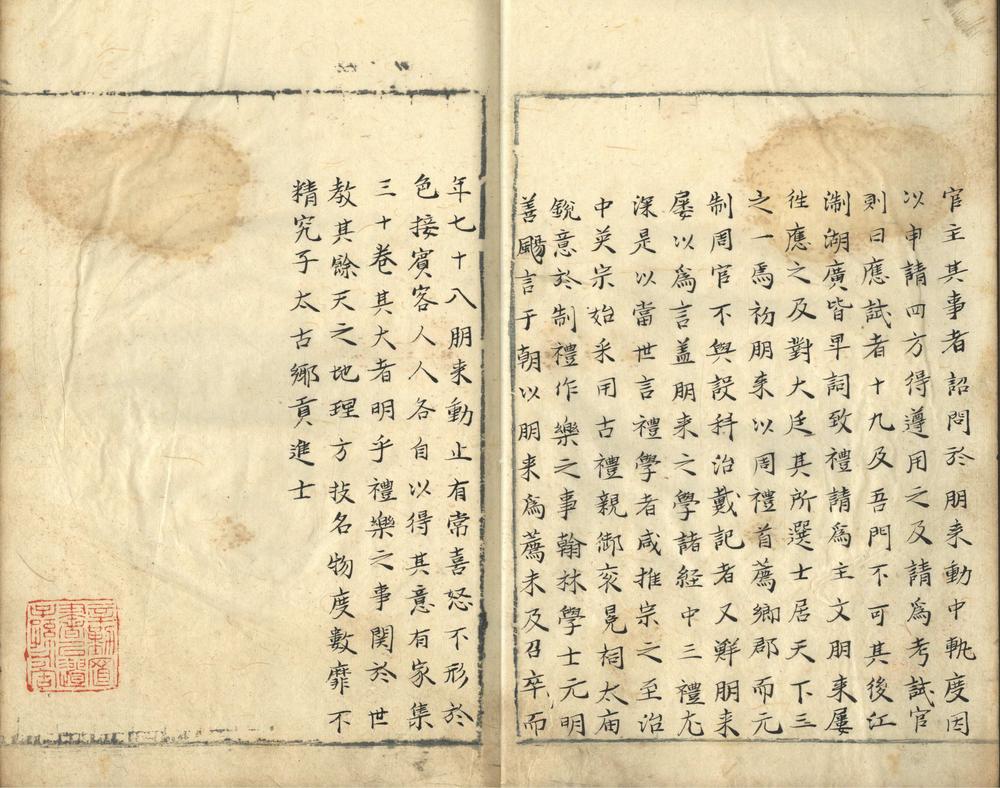 官主其事者詔問於朋来動中軌度因
以申請四方得遵用之及請爲考試官
则曰應試者十九及吾門不可其後江
淛湖廣皆早詞致禮請爲主文朋来屢
徃應之及對大廷其所選士居天下三
之一焉初朋来以周禮首薦鄉郡而元
制周官不與設科治戴記者又鮮朋来
屡以爲言盖朋来之學諸経中三禮尤
深是以當世言禮學者咸推宗之至治
中英宗始采用古禮親御衮冕祠太庙
銳意於制禮作樂之事翰林學士元明
善颺言于朝以朋来爲薦未及召卒而
年七十八朋来動止有常喜怒不形於
色接賓客人人各自以得其意有家集
三十卷其大者明乎禮樂之事関於世
教其餘天之地理方技名物度數靡不
精究子太古鄉貢進士